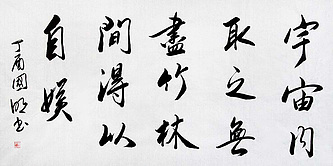 宇宙内
取之無
盡竹林
間得以
自娱
丁酉國明書